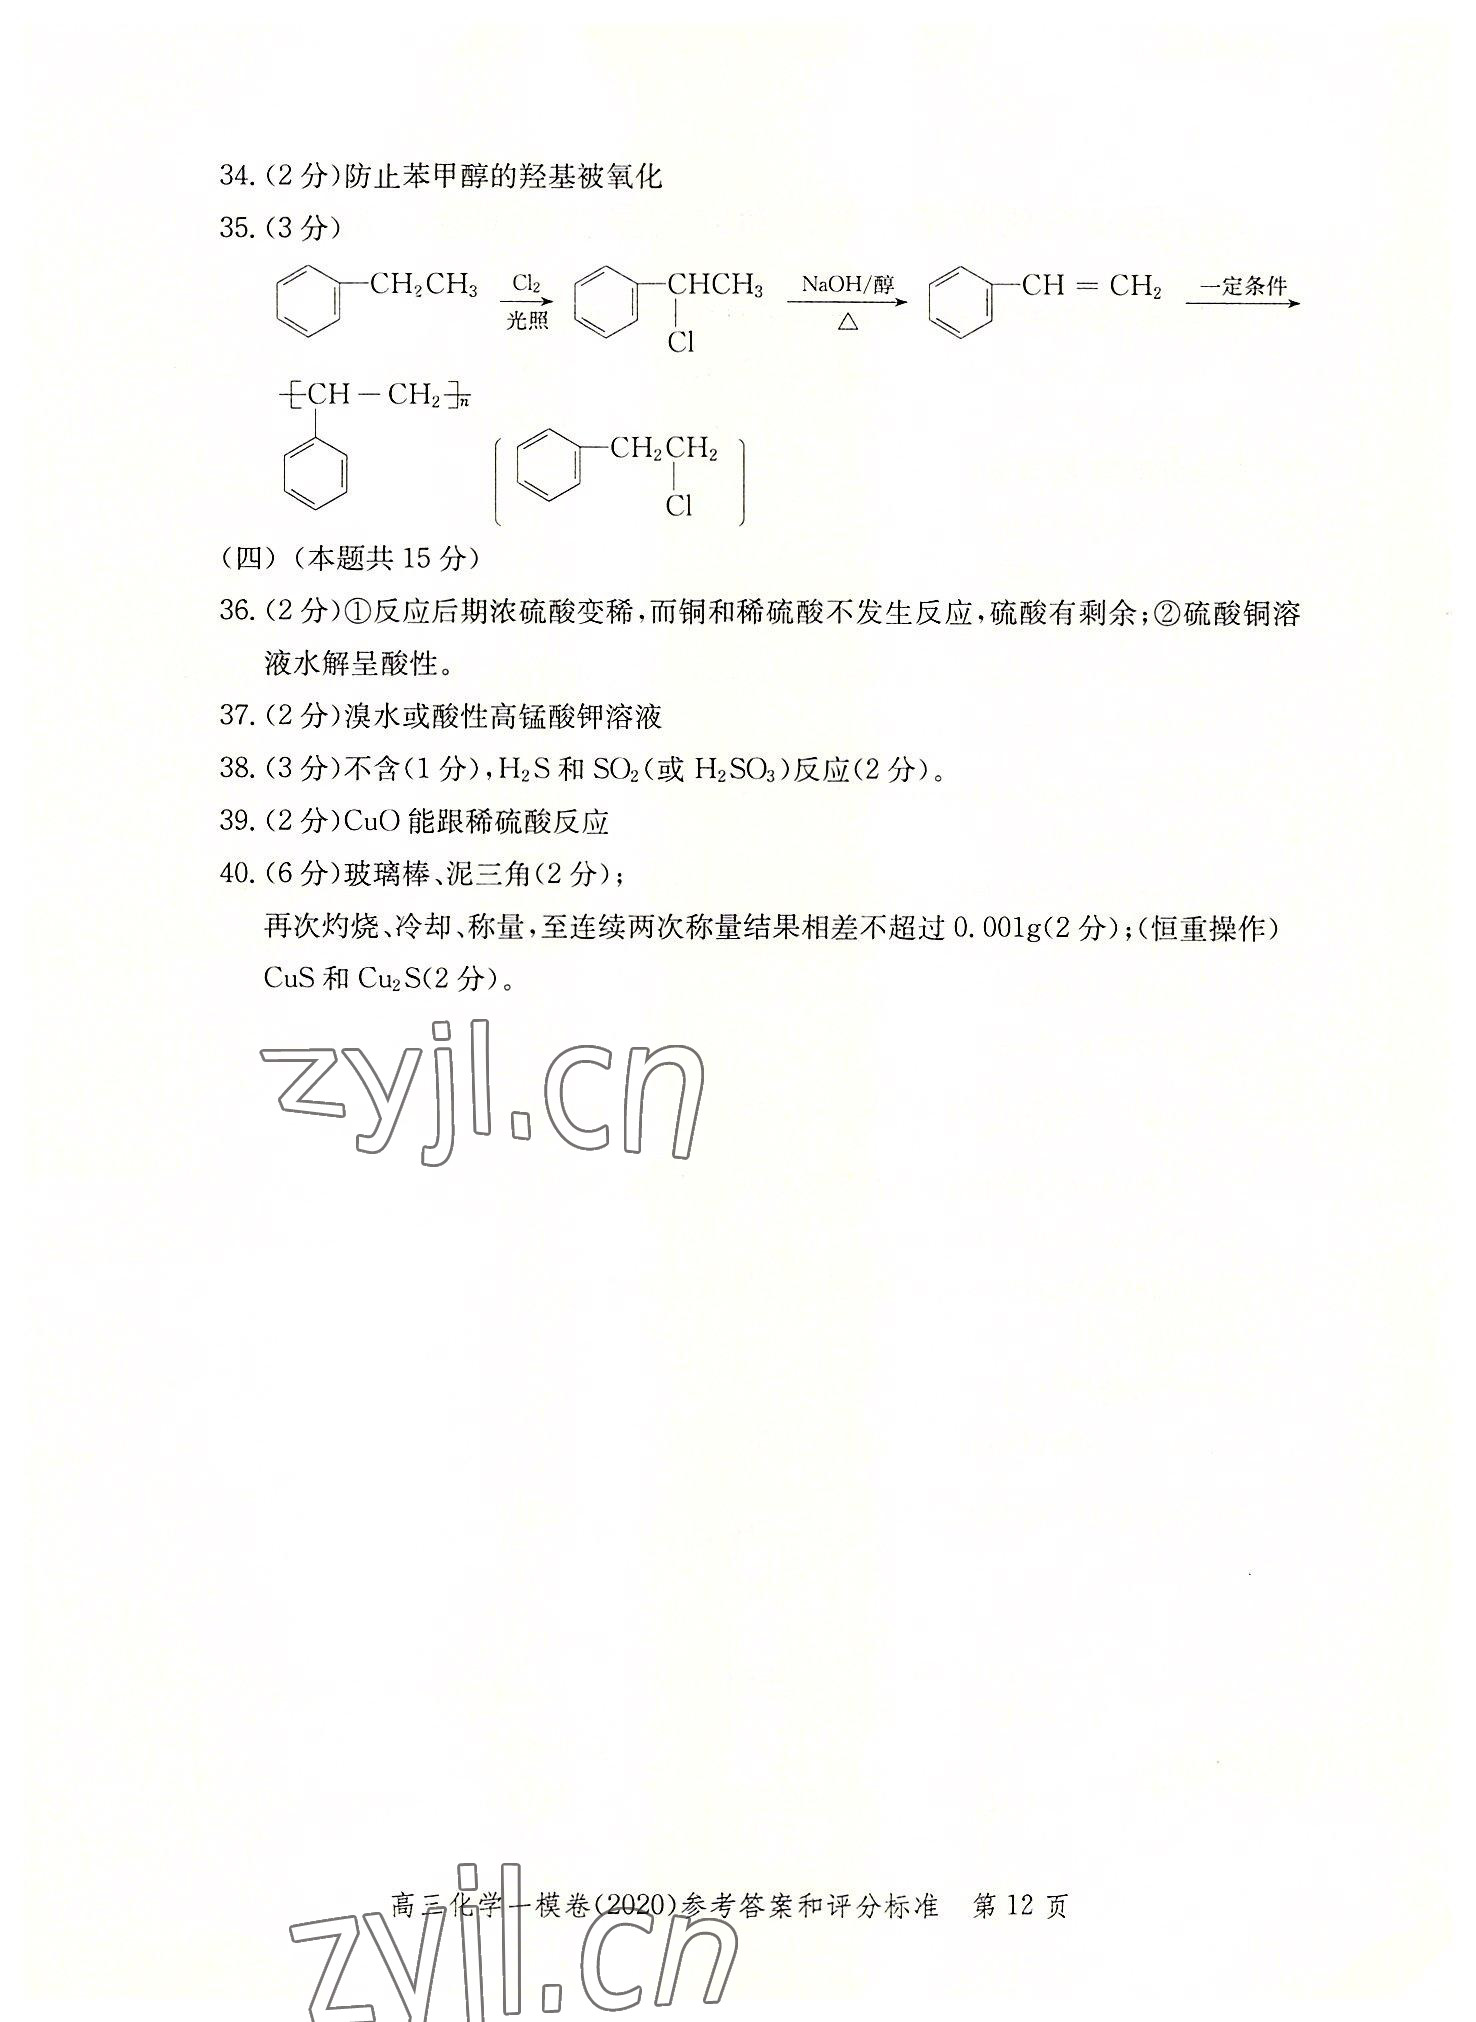 34.(2分)防止苯甲醇的羟基被氧化
35.(3分)
CH₂CH₃ Cl₂ 光照 CHCH₃ Cl NaOH/醇 △ CH=CH₂ 一定条件
[CH-CH₂]ₙ
CH₂CH₂ Cl
(四)(本题共15分)
36.(2分)①反应后期浓硫酸变稀,而铜和稀硫酸不发生反应,硫酸有剩余;②硫酸铜溶
液水解呈酸性。
37.(2分)溴水或酸性高锰酸钾溶液
38.(3分)不含(1分),H₂S和SO₂(或H₂SO₃)反应(2分)。
39.(2分)CuO能跟稀硫酸反应
40.(6分)玻璃棒、泥三角(2分);
再次灼烧、冷却、称量,至连续两次称量结果相差不超过0.001g(2分);(恒重操作)
CuS和Cu₂S(2分)。
zyjl.cn
高三化学一模卷(2020)参考答案和评分标准 第12页
zyjl.cn